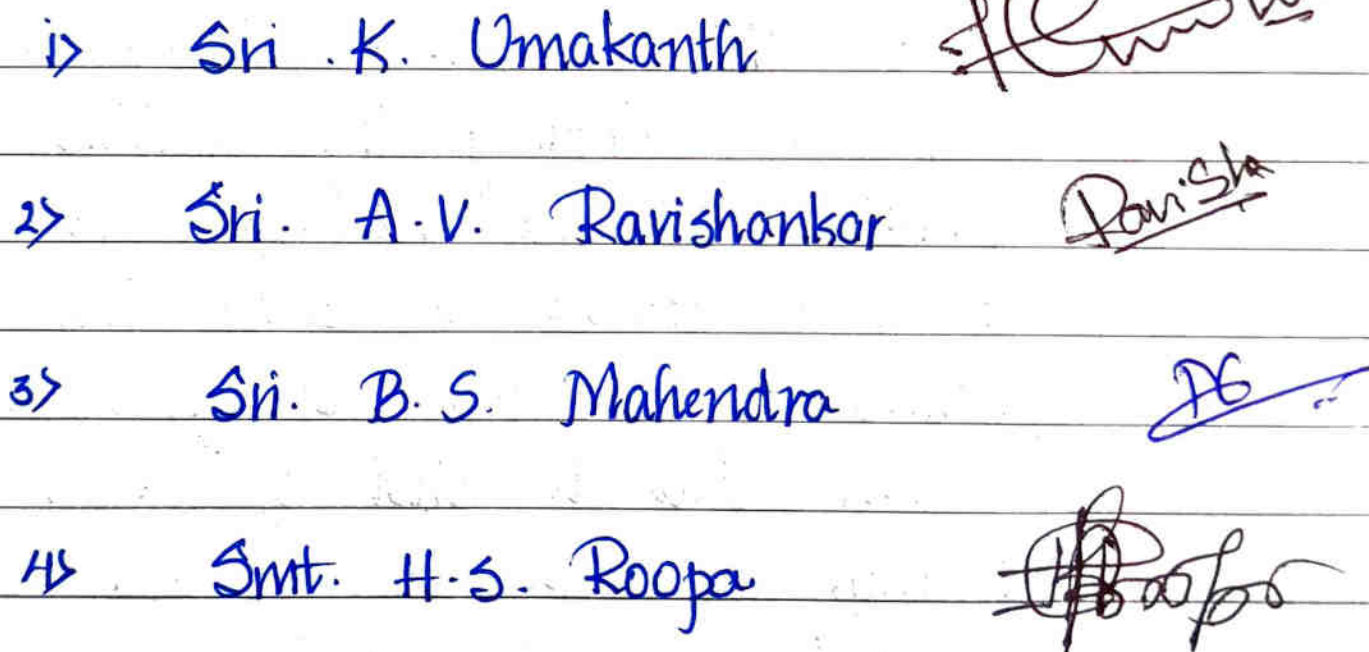 1> Sri. K. Umakanth
2> Sri. A.V. Ravishankar Ravish
3> Sri. B.S. Mahendra
4> Smt. H.S. Roopa